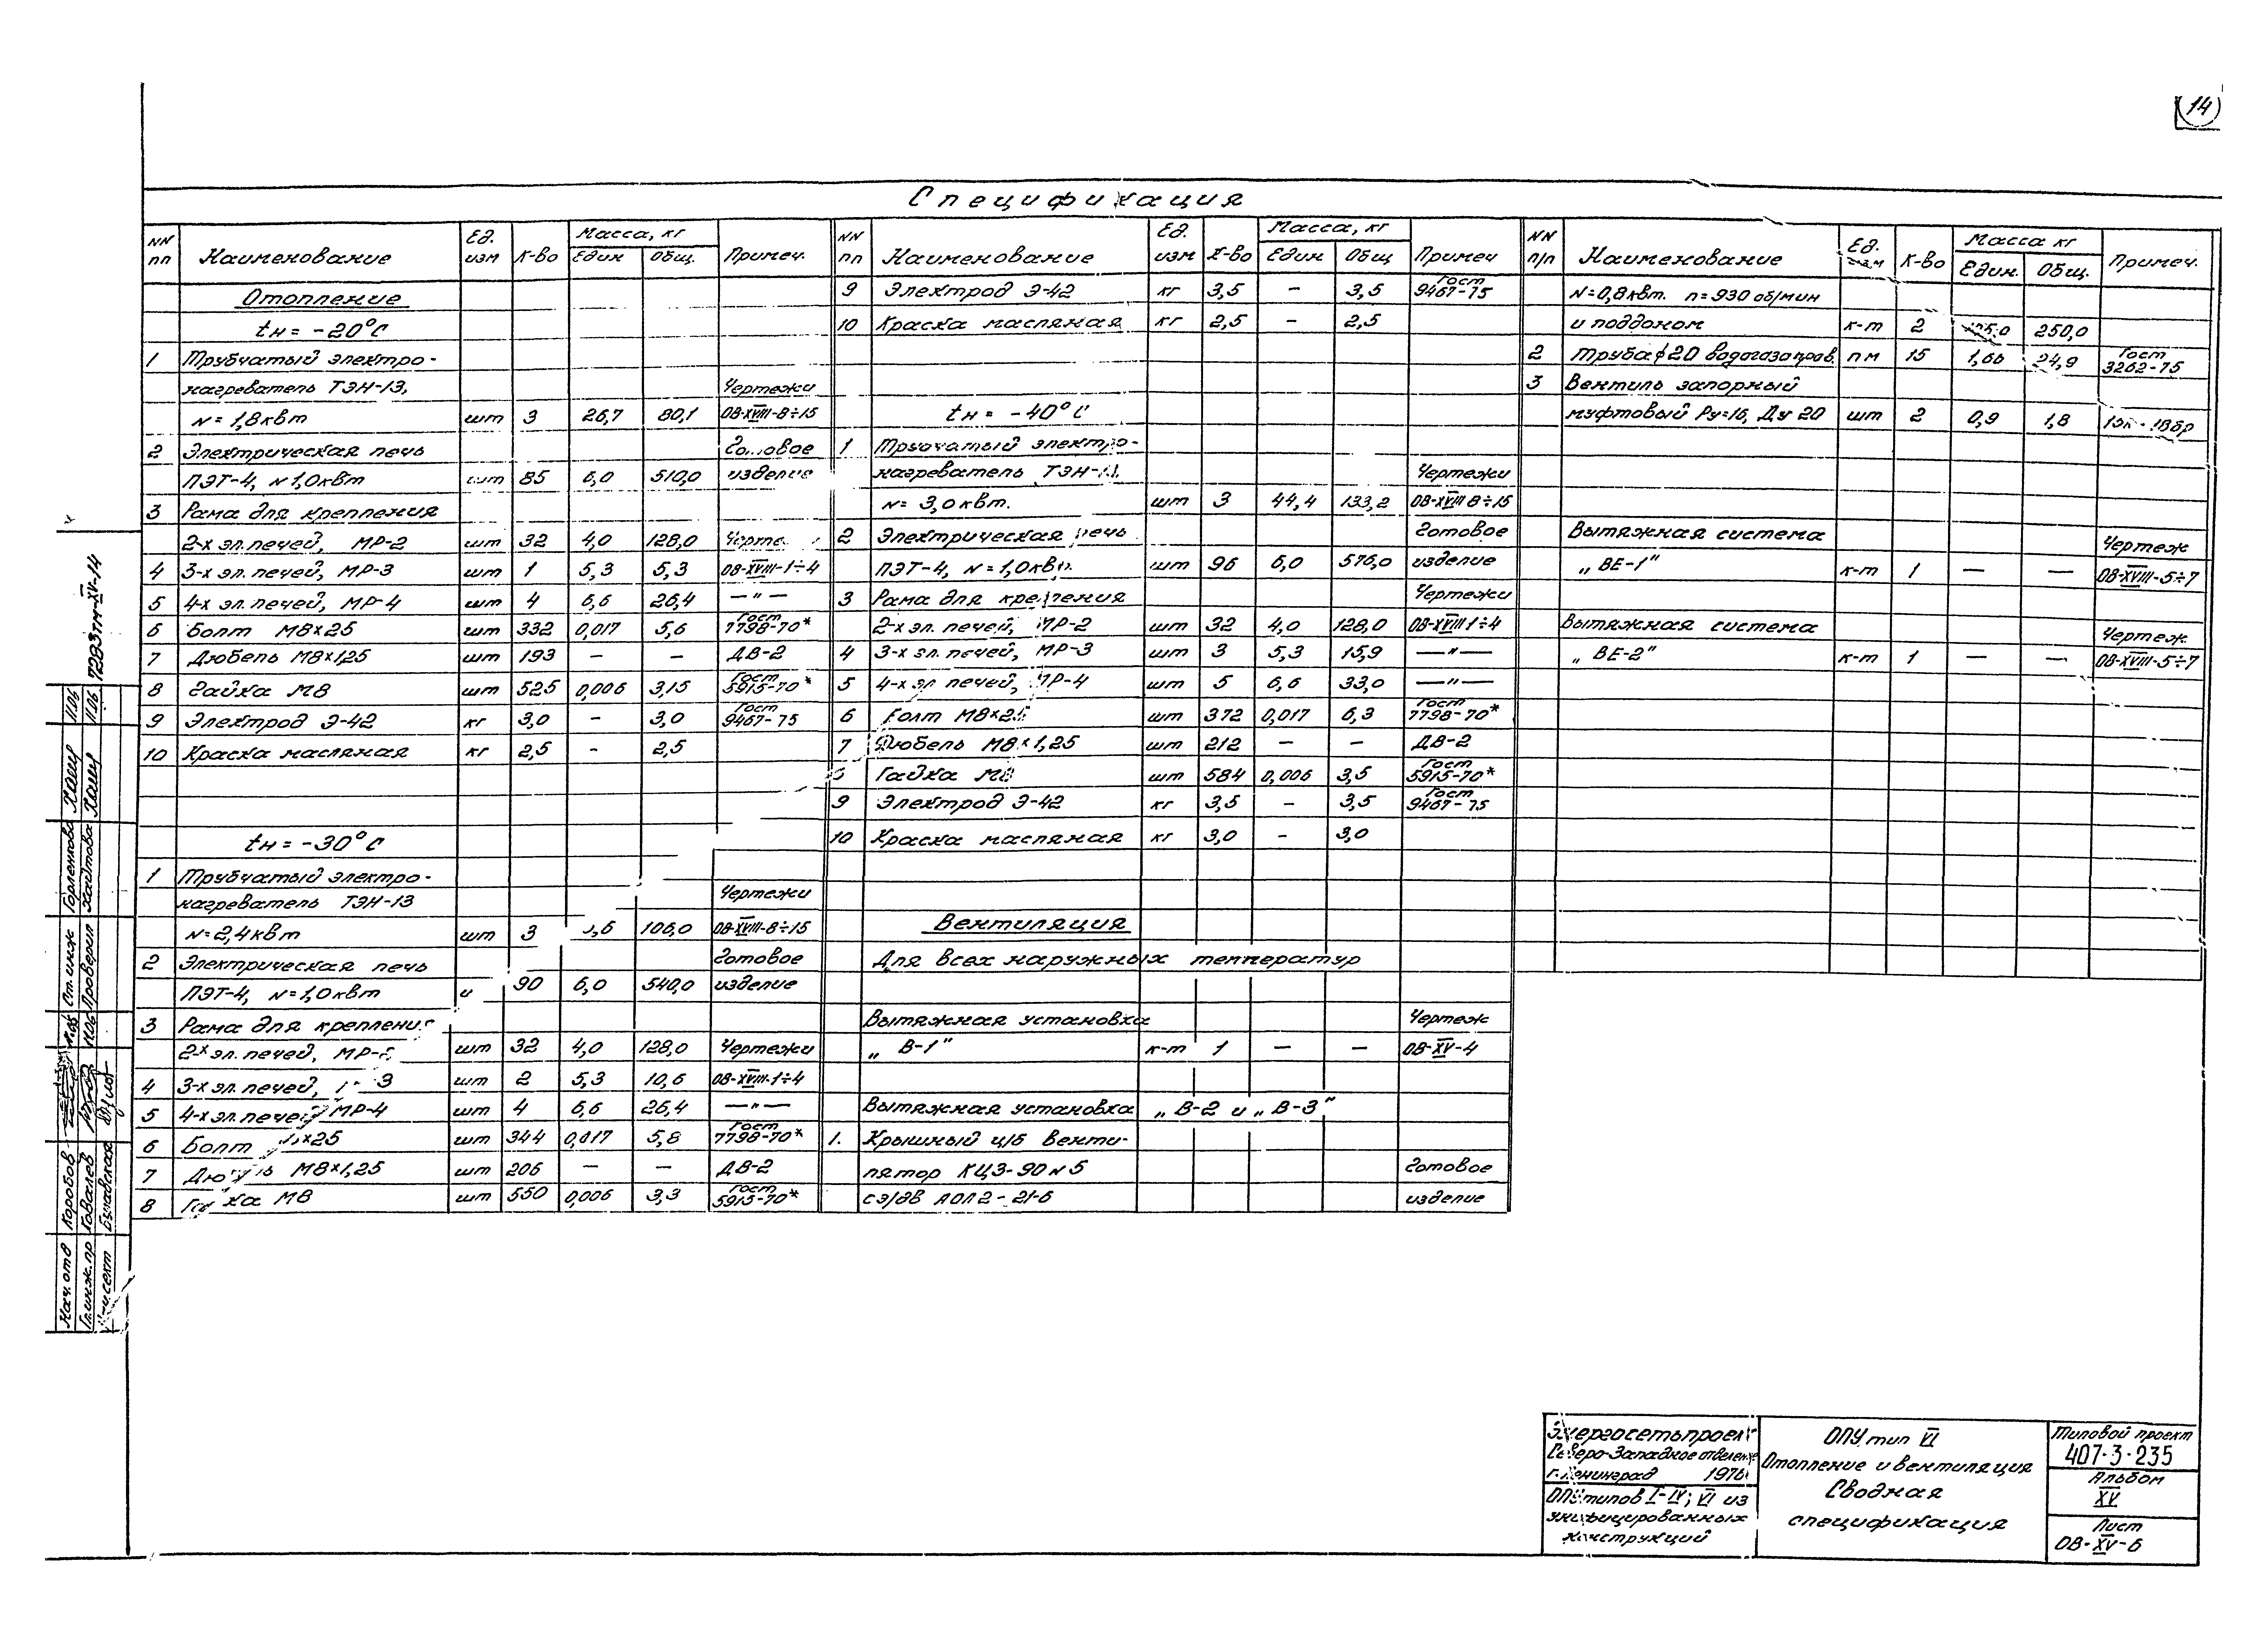 14
Спецификация
NN пп Наименование Ед. изм К-во Масса, кг Един Общ. Примеч.
Отопление
tн = -20°С
1 Трубчатый электро-
нагреватель ТЭН-13, Чертежи
N = 1,8 квт шт 3 26,7 80,1 ОВ-XVIII-8÷15
2 Электрическая печь Готовое
ПЭТ-4, N 1,0 квт шт 85 6,0 510,0 изделие
3 Рама для крепления
2-х эл. печей, МР-2 шт 32 4,0 128,0
4 3-х эл. печей, МР-3 шт 1 5,3 5,3 ОВ-XVIII-1÷4
5 4-х эл. печей, МР-4 шт 4 6,6 26,4 —"—
6 Болт М8×25 шт 332 0,017 5,6 Гост 7798-70*
7 Дюбель М8×1,25 шт 193 — — ДВ-2
8 Гайка М8 шт 525 0,006 3,15 Гост 5915-70*
9 Электрод Э-42 кг 3,0 - 3,0 Гост 9467-75
10 Краска масляная кг 2,5 - 2,5
tн = -30°С
1 Трубчатый электро-
нагреватель ТЭН-13 Чертежи
N = 2,4 квт шт 3 106,0 ОВ-XVIII-8÷15
2 Электрическая печь Готовое
ПЭТ-4, N = 1,0 квт 90 6,0 540,0 изделие
3 Рама для крепления
2-х эл. печей, шт 32 4,0 128,0 Чертежи
4 3-х эл. печей, шт 2 5,3 10,6 ОВ-XVIII-1÷4
5 4-х эл. печей МР-4 шт 4 6,6 26,4 —"—
6 Болт шт 344 0,017 5,8 Гост 7798-70*
7 Дюбель М8×1,25 шт 206 — — ДВ-2
8 Гайка М8 шт 550 0,006 3,3 Гост 5915-70*
NN пп Наименование Ед. изм К-во Масса, кг Един Общ Примеч
9 Электрод Э-42 кг 3,5 - 3,5 Гост 9467-75
10 Краска масляная кг 2,5 - 2,5
tн = -40°С
1 Трубчатый электро-
нагреватель Чертежи
N = 3,0 квт. шт 3 44,4 133,2 ОВ-XVIII 8÷15
2 Электрическая печь Готовое
ПЭТ-4, N = 1,0 квт. шт 96 6,0 576,0 изделие
3 Рама для крепления Чертежи
2-х эл. печей, МР-2 шт 32 4,0 128,0 ОВ-XVIII 1÷4
4 3-х эл. печей, МР-3 шт 3 5,3 15,9 —"—
5 4-х эл печей, МР-4 шт 5 6,6 33,0 —"—
6 Болт М8×25 шт 372 0,017 6,3 Гост 7798-70*
7 Дюбель М8×1,25 шт 212 — — ДВ-2
8 Гайка М8 шт 584 0,006 3,5 Гост 5915-70*
9 Электрод Э-42 кг 3,5 - 3,5 Гост 9467-75
10 Краска масляная кг 3,0 - 3,0
Вентиляция
Для всех наружных температур
Вытяжная установка Чертеж
„В-1" к-т 1 — — ОВ-XV-4
Вытяжная установка „В-2 и „В-3"
1. Крышный ц/б венти-
лятор КЦ3-90 N 5 Готовое
с эл/дв АОЛ2-21-6 изделие
NN п/п Наименование Ед. изм К-во Масса кг Един. Общ. Примеч.
N = 0,8 квт. n = 930 об/мин
и поддоном к-т 2 250,0
2 Труба ф 20 водогазопров. пм 15 1,66 24,9 Гост 3262-75
3 Вентиль запорный
муфтовый Ру=16, Ду 20 шт 2 0,9 1,8
Вытяжная система Чертеж
„ВЕ-1" к-т 1 — — ОВ-XVIII-5÷7
Вытяжная система Чертеж
„ВЕ-2" к-т 1 — — ОВ-XVIII-5÷7
7283тм-XV-14
Нач. отв Коробов
Гл. инж. пр Ковалев
Ст. инж Горленкова
Проверил
Энергосетьпроект
Северо-Западное отделение
г. Ленинград 1976
ОПУ типов I-IV; VI из
унифицированных
конструкций
ОПУ тип VI
Отопление и вентиляция
Сводная
спецификация
Типовой проект
407-3-235
Альбом
XV
Лист
ОВ-XV-6